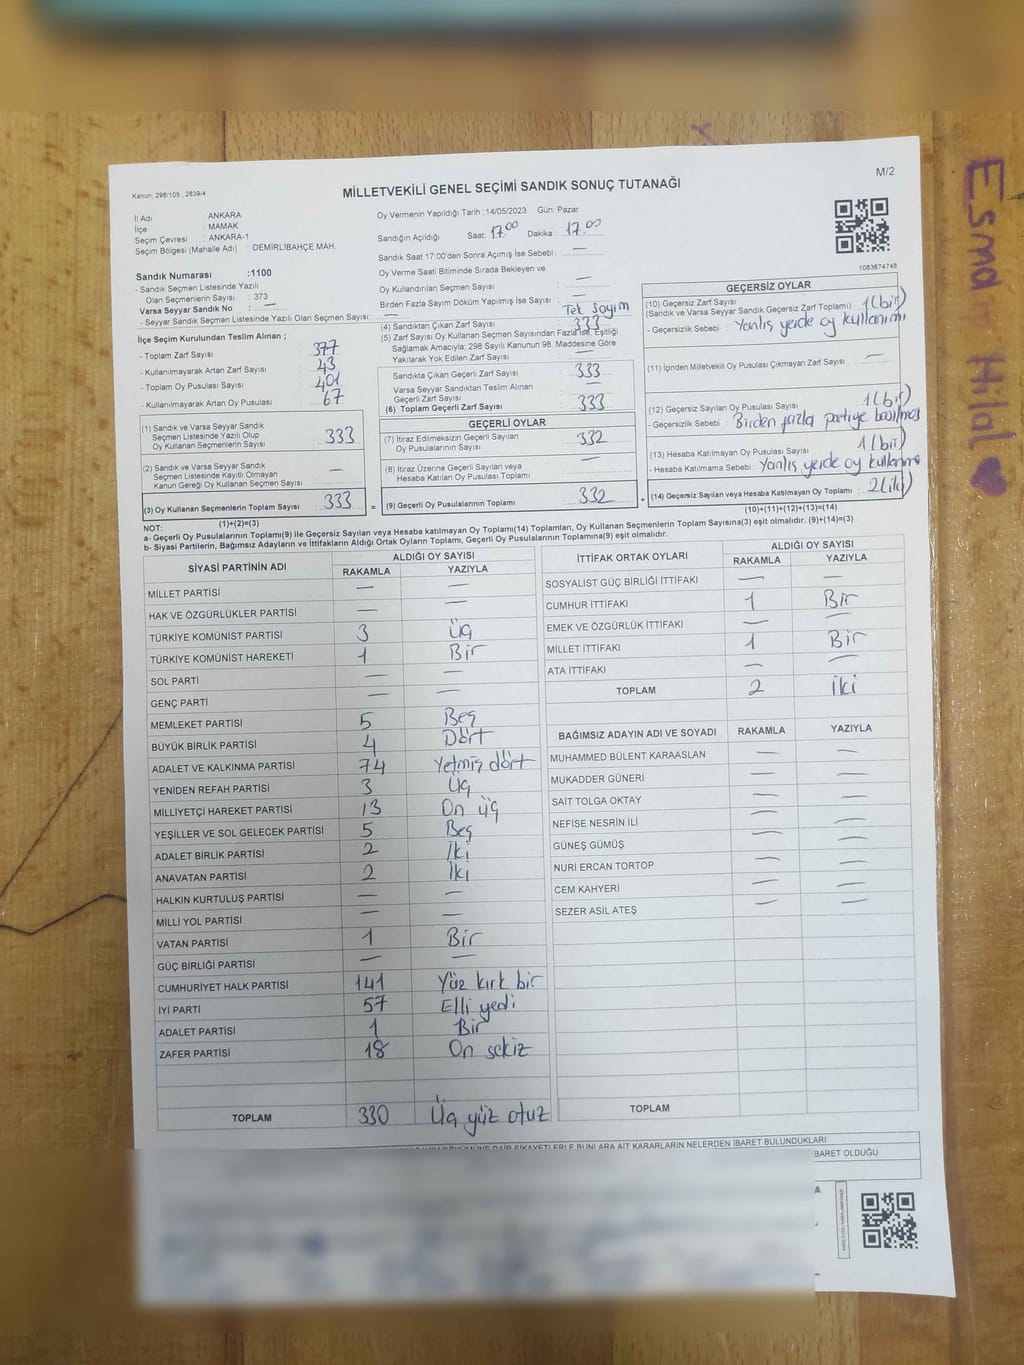 Kanun: 298/105 , 2839/4
MİLLETVEKİLİ GENEL SEÇİMİ SANDIK SONUÇ TUTANAĞI
M/2
İl Adı : ANKARA
İlçe : MAMAK
Seçim Çevresi : ANKARA-1
Seçim Bölgesi (Mahalle Adı) : DEMİRLİBAHÇE MAH.
Sandık Numarası :1100
- Sandık Seçmen Listesinde Yazılı
Olan Seçmenlerin Sayısı : 373
Varsa Seyyar Sandık No : —
- Seyyar Sandık Seçmen Listesinde Yazılı Olan Seçmen Sayısı: —
Oy Vermenin Yapıldığı Tarih : 14/05/2023 Gün: Pazar
Sandığın Açıldığı Saat: 17.00 Dakika : 17.00
Sandık Saat 17:00'den Sonra Açımış İse Sebebi : —
Oy Verme Saati Bitiminde Sırada Bekleyen ve
Oy Kullandırılan Seçmen Sayısı : —
Birden Fazla Sayım Döküm Yapılmış İse Sayısı : —
Tek Sayım
1083674748
İlçe Seçim Kurulundan Teslim Alınan ;
- Toplam Zarf Sayısı : 377
- Kullanılmayarak Artan Zarf Sayısı : 43
- Toplam Oy Pusulası Sayısı : 401
- Kullanılmayarak Artan Oy Pusulası : 67
(1) Sandık ve Varsa Seyyar Sandık
Seçmen Listesinde Yazılı Olup
Oy Kullanan Seçmenlerin Sayısı : 333
(2) Sandık ve Varsa Seyyar Sandık
Seçmen Listesinde Kayıtlı Olmayan
Kanun Gereği Oy Kullanan Seçmen Sayısı : —
(3) Oy Kullanan Seçmenlerin Toplam Sayısı : 333
(1)+(2)=(3)
(4) Sandıktan Çıkan Zarf Sayısı : 333
(5) Zarf Sayısı Oy Kullanan Seçmen Sayısından Fazla ise, Eşitliği
Sağlamak Amacıyla; 298 Sayılı Kanunun 98. Maddesine Göre
Yakılarak Yok Edilen Zarf Sayısı : —
Sandıkta Çıkan Geçerli Zarf Sayısı : 333
Varsa Seyyar Sandıktan Teslim Alınan
Geçerli Zarf Sayısı : —
(6) Toplam Geçerli Zarf Sayısı : 333
GEÇERLİ OYLAR
(7) İtiraz Edilmeksizin Geçerli Sayılan
Oy Pusulası Sayısı : 332
(8) İtiraz Üzerine Geçerli Sayılan veya
Hesaba Katılan Oy Pusulası Toplamı : —
= (9) Geçerli Oy Pusulalarının Toplamı : 332
GEÇERSİZ OYLAR
(10) Geçersiz Zarf Sayısı : 1(bir)
(Sandık ve Varsa Seyyar Sandık Geçersiz Zarf Toplamı)
- Geçersizlik Sebebi : Yanlış yerde oy kullanımı
(11) İçinden Milletvekili Oy Pusulası Çıkmayan Zarf Sayısı : —
(12) Geçersiz Sayılan Oy Pusulası Sayısı : 1(bir)
- Geçersizlik Sebebi : Birden fazla partiye basılmış
(13) Hesaba Katılmayan Oy Pusulası Sayısı : 1(bir)
- Hesaba Katılmama Sebebi : Yanlış yerde oy kullanımı
+ (14) Geçersiz Sayılan veya Hesaba Katılmayan Oy Toplamı : 2(iki)
(10)+(11)+(12)+(13)=(14)
NOT:
a- Geçerli Oy Pusulalarının Toplamı(9) ile Geçersiz Sayılan veya Hesaba katılmayan Oy Toplamı(14) Toplamları, Oy Kullanan Seçmenlerin Toplam Sayısına(3) eşit olmalıdır. (9)+(14)=(3)
b- Siyasi Partilerin, Bağımsız Adayların ve İttifakların Aldığı Ortak Oyların Toplamı, Geçerli Oy Pusulalarının Toplamına(9) eşit olmalıdır.
SİYASİ PARTİNİN ADI ALDIĞI OY SAYISI
RAKAMLA YAZIYLA
MİLLET PARTİSİ — —
HAK VE ÖZGÜRLÜKLER PARTİSİ — —
TÜRKİYE KOMÜNİST PARTİSİ 3 Üç
TÜRKİYE KOMÜNİST HAREKETİ 1 Bir
SOL PARTİ — —
GENÇ PARTİ — —
MEMLEKET PARTİSİ 5 Beş
BÜYÜK BİRLİK PARTİSİ 4 Dört
ADALET VE KALKINMA PARTİSİ 74 Yetmiş dört
YENİDEN REFAH PARTİSİ 3 Üç
MİLLİYETÇİ HAREKET PARTİSİ 13 On üç
YEŞİLLER VE SOL GELECEK PARTİSİ 5 Beş
ADALET BİRLİK PARTİSİ 2 İki
ANAVATAN PARTİSİ 2 İki
HALKIN KURTULUŞ PARTİSİ — —
MİLLİ YOL PARTİSİ — —
VATAN PARTİSİ 1 Bir
GÜÇ BİRLİĞİ PARTİSİ — —
CUMHURİYET HALK PARTİSİ 141 Yüz kırk bir
İYİ PARTİ 57 Elli yedi
ADALET PARTİSİ 1 Bir
ZAFER PARTİSİ 18 On sekiz
TOPLAM 330 Üç yüz otuz
İTTİFAK ORTAK OYLARI ALDIĞI OY SAYISI
RAKAMLA YAZIYLA
SOSYALİST GÜÇ BİRLİĞİ İTTİFAKI — —
CUMHUR İTTİFAKI 1 Bir
EMEK VE ÖZGÜRLÜK İTTİFAKI — —
MİLLET İTTİFAKI 1 Bir
ATA İTTİFAKI — —
TOPLAM 2 İki
BAĞIMSIZ ADAYIN ADI VE SOYADI RAKAMLA YAZIYLA
MUHAMMED BÜLENT KARAASLAN — —
MUKADDER GÜNERİ — —
SAİT TOLGA OKTAY — —
NEFİSE NESRİN İLİ — —
GÜNEŞ GÜMÜŞ — —
NURİ ERCAN TORTOP — —
CEM KAHYERİ — —
SEZER ASİL ATEŞ — —
TOPLAM
ŞİKAYETLERLE BUNLARA AİT KARARLARIN NELERDEN İBARET BULUNDUKLARI
BARET OLDUĞU
Esma Hilal